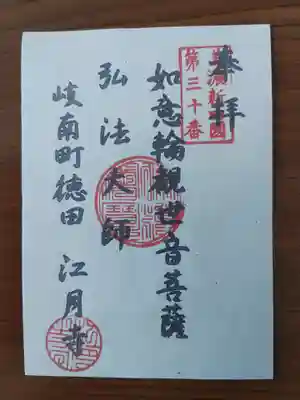 奉拝
美濃新四国
第三十番
如意輪観世音菩薩
弘法大師
岐南町徳田 江月寺